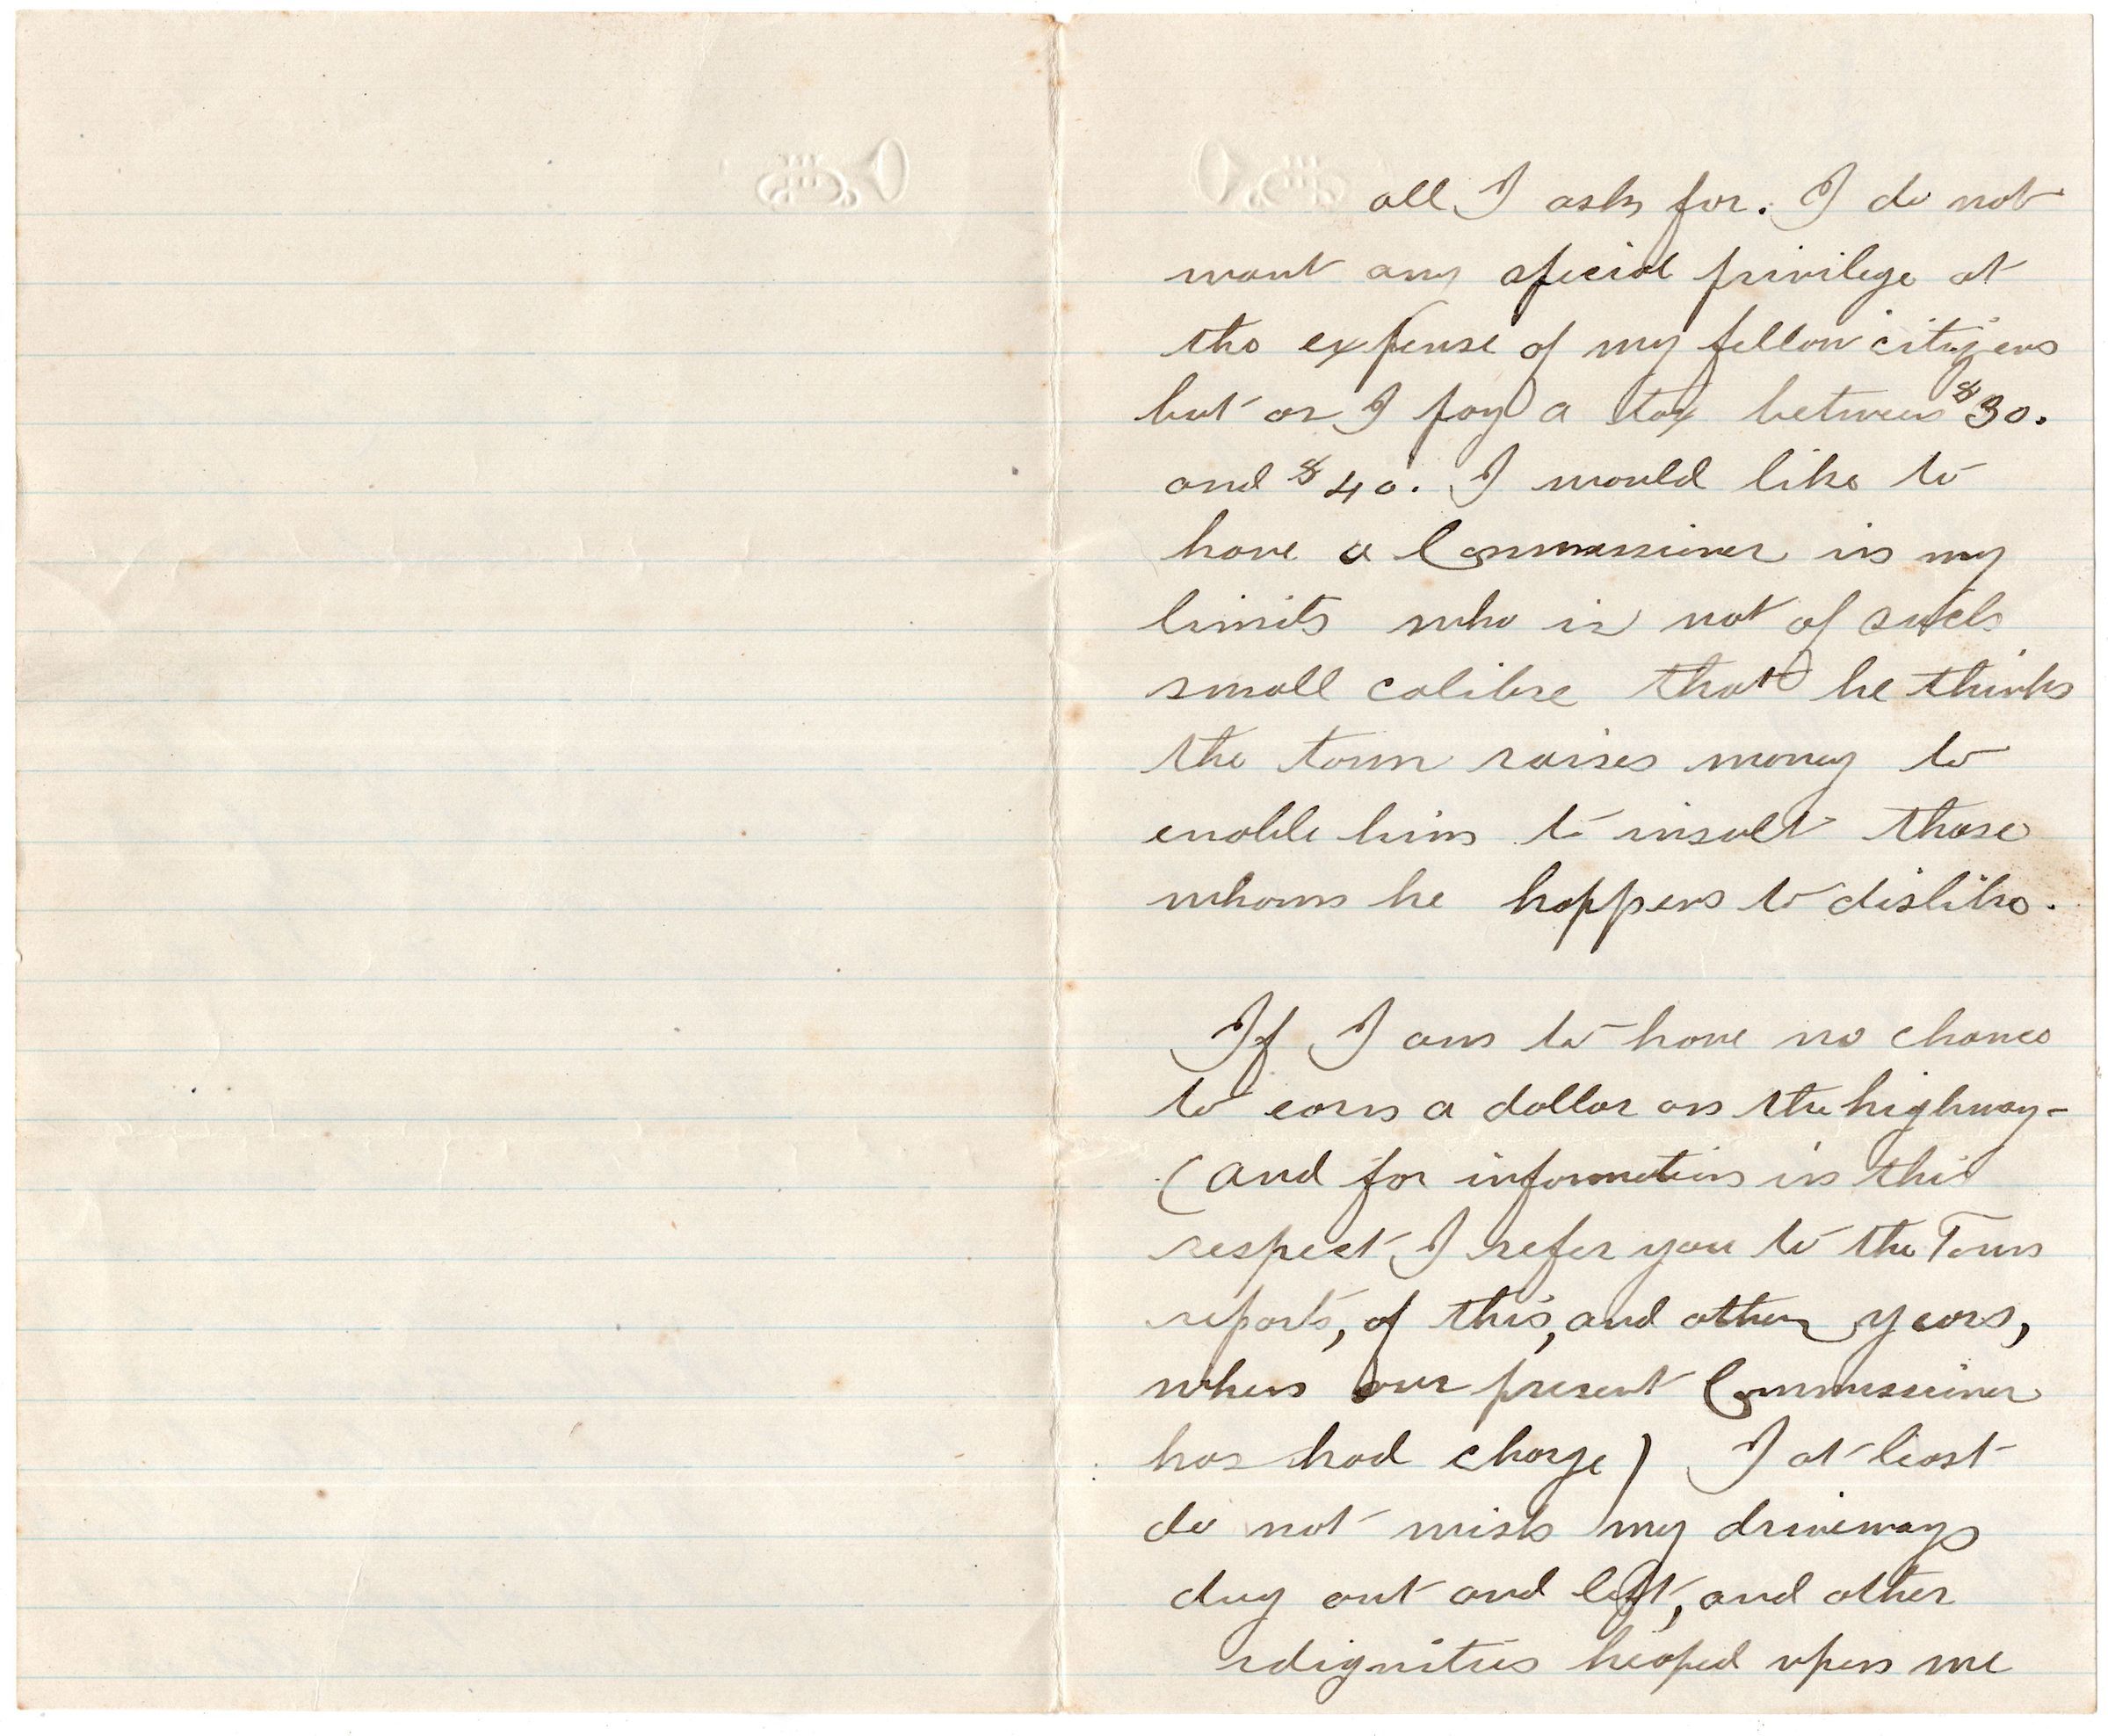 all I ask for. I do not
want any special privilege at
the expense of my fellow citizens
but as I pay a tax between $30.
and $40. I would like to
have a Commissioner in my
limits who is not of such
small calibre that he thinks
the town raises money to
enable him to insult those
whom he happens to dislike.
If I am to have no chance
to earn a dollar on the highway-
(and for information in this
respect I refer you to the Town
reports, of this, and other years,
when our present Commissioner
has had charge) I at least
do not wish my driveways
dug out and left, and other
indignities heaped upon me